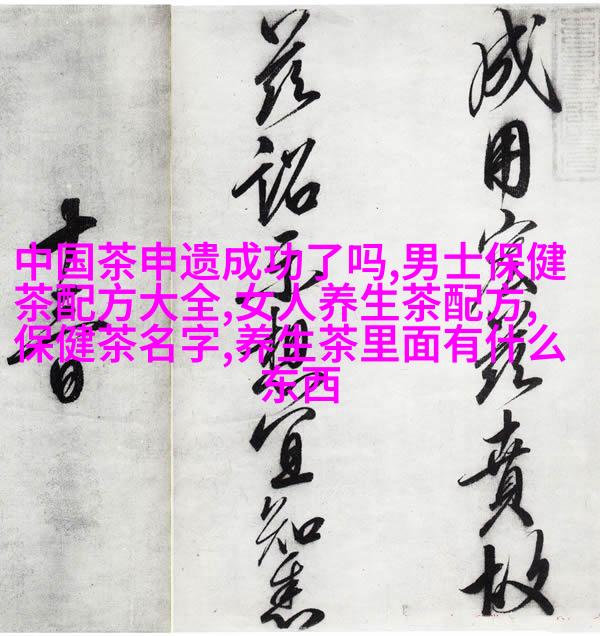 中国茶申遗成功了吗,男士保健
茶配方大全,女人养生茶配方,
保健茶名字,养生茶里面有什么
东西
成用宏茲賁故
茲詔示想宜知悉
十日